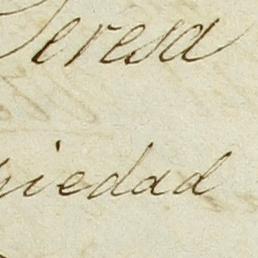 Teresa
piedad